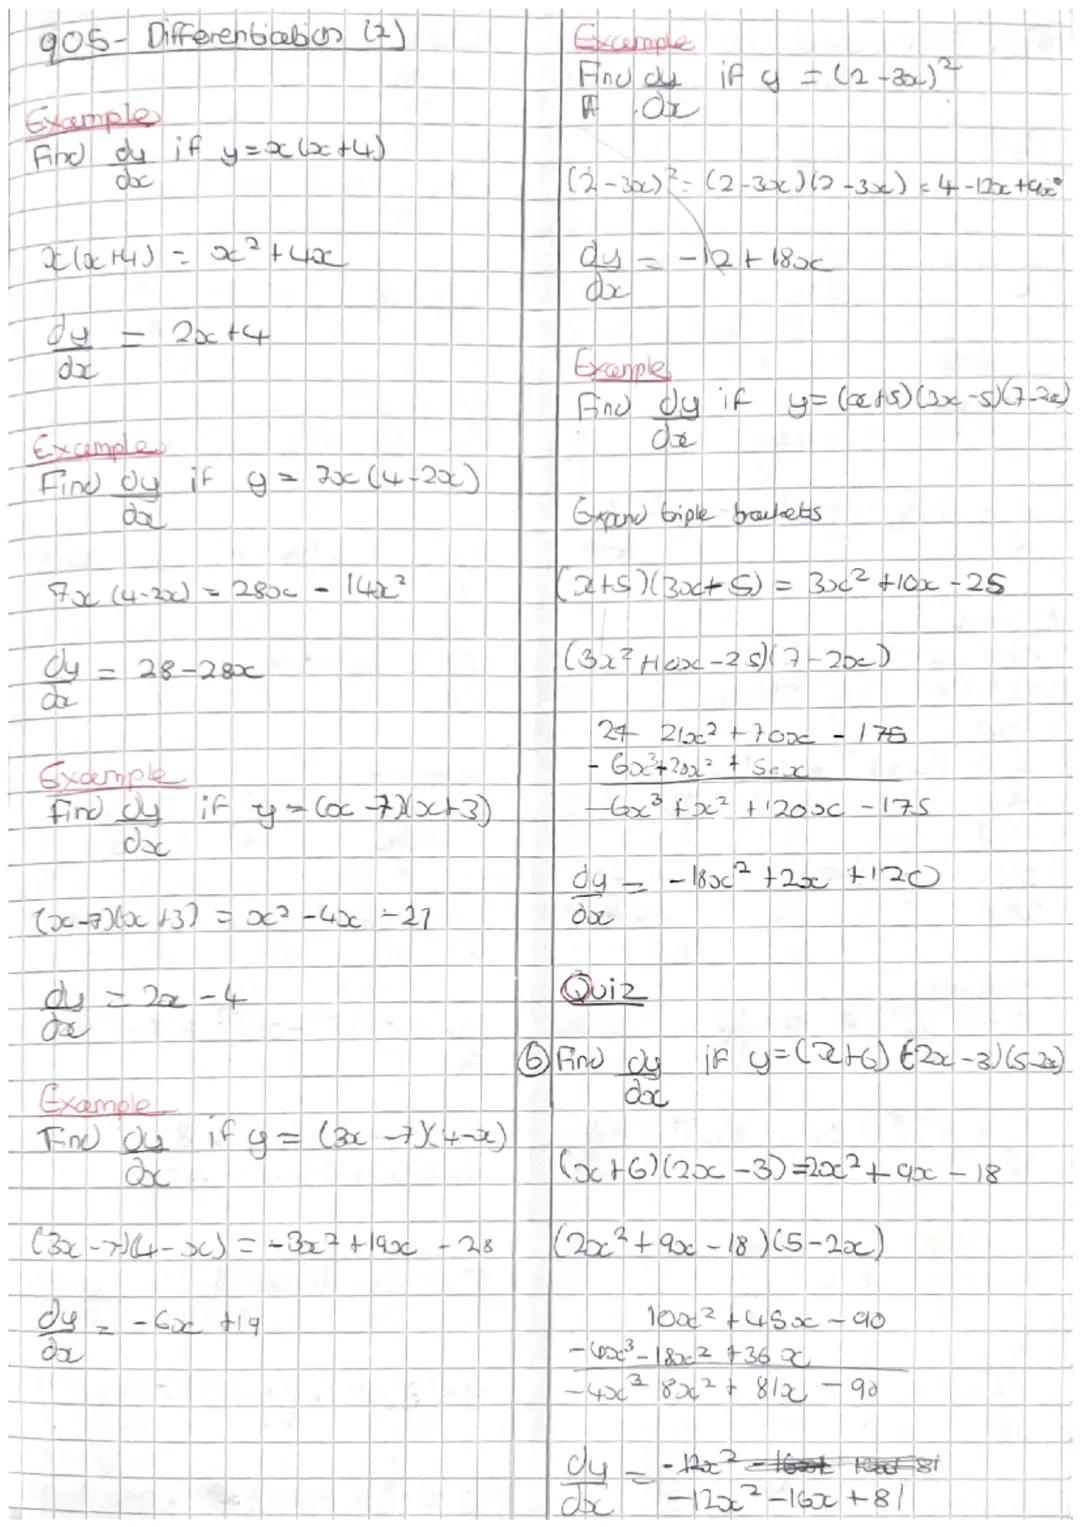 905- Differentiation (2)
Example
Find dy/dx if y=x(x+4)
x(x+4) = x² +4x
dy/dx = 2x+4
Example
Find dy/dx if y = 7x(4-2x)
7x(4-2x) = 28x - 14x²
dy/dx = 28-28x
Example
Find dy/dx if y = (x-7)(x+3)
(x-7)(x+3) = x² -4x -21
dy/dx = 2x -4
Example
Find dy/dx if y = (3x -7)(4-x)
(3x-7)(4-x) = -3x² +19x -28
dy/dx = -6x +19
Example
Find dy/dx if y = (2-3x)²
(2-3x)² = (2-3x)(2-3x) = 4-12x+9x²
dy/dx = -12+18x
Example
Find dy/dx if y= (x+5)(3x-5)(7-2x)
Expand triple brackets
(x+5)(3x+5) = 3x² +10x -25
(3x²+10x-25)(7-2x)
21x² +70x -175
-6x³+20x² + 50x
-6x³ +x² +120x -175
dy/dx = -18x² +2x +120
Quiz
6 Find dy/dx if y=(x+6)(2x-3)(5-2x)
(x+6)(2x-3)=2x²+9x-18
(2x²+9x-18)(5-2x)
10x² +45x -90
-4x³-18x² +36x
-4x³ 8x² + 81x -90
dy/dx = -12x² - 81
-12x² -16x +81